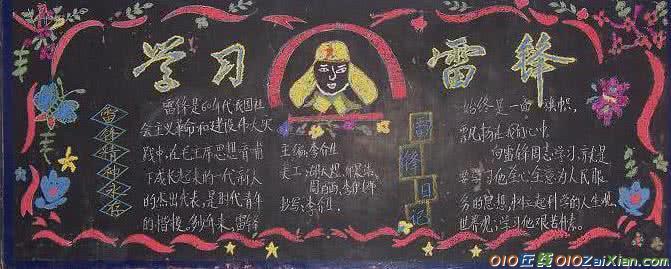 学习
雷锋
雷锋精神永存
雷锋是60年代我国社
会主义革命和建设伟大实
践中,在毛主席思想哺育
下成长起来的一代新人
的杰出代表,是时代青年
的楷模。多少年来,雷锋
主编:李行
美工:
抄写:李行
雷锋日记
始终是一面旗帜,
飘扬在我们心中。
向雷锋同志学习,就是
要学习他全心全意为人民服
务的思想,树立起科学的人生观,
世界观;学习他艰苦朴素。
010在线 010ZaiXian.com